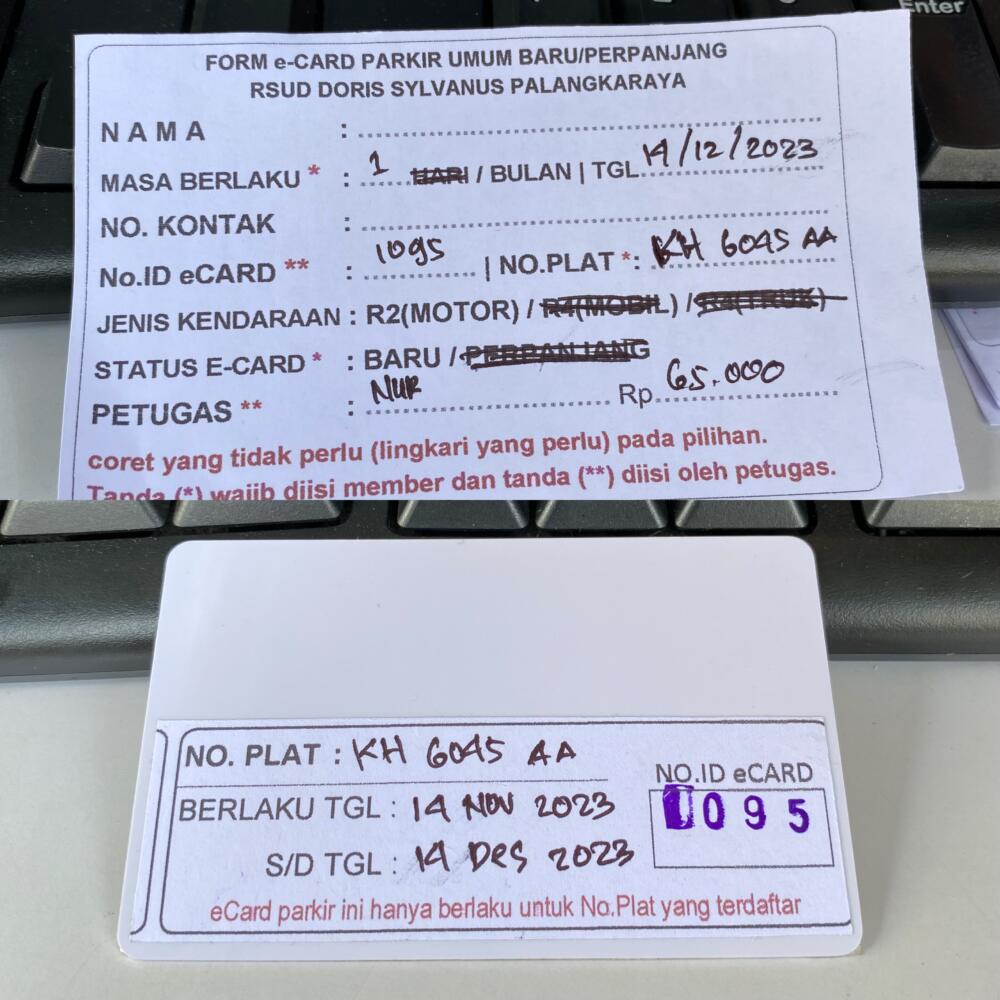 Enter
FORM e-CARD PARKIR UMUM BARU/PERPANJANG
RSUD DORIS SYLVANUS PALANGKARAYA
N A M A :
MASA BERLAKU * : 1 HARI / BULAN | TGL 14/12/2023
NO. KONTAK :
No.ID eCARD ** : 1095 | NO.PLAT *: KH 6045 AA
JENIS KENDARAAN : R2(MOTOR) / R4(MOBIL) / R4(TRUK)
STATUS E-CARD * : BARU / PERPANJANG
PETUGAS ** : NUR Rp 65.000
coret yang tidak perlu (lingkari yang perlu) pada pilihan.
Tanda (*) wajib diisi member dan tanda (**) diisi oleh petugas.
NO. PLAT : KH 6045 AA
NO.ID eCARD
1095
BERLAKU TGL : 14 NOV 2023
S/D TGL : 14 DES 2023
eCard parkir ini hanya berlaku untuk No.Plat yang terdaftar